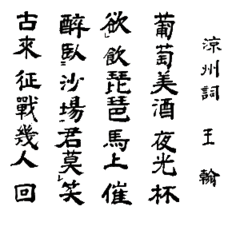 涼州詞 王翰
葡萄美酒夜光杯
欲飲琵琶馬上催
醉臥沙場君莫笑
古來征戰幾人回